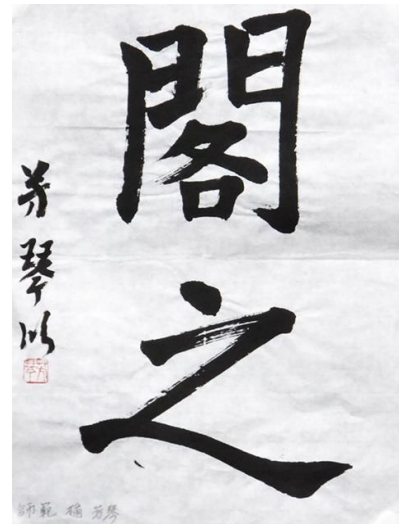 閣之
芳琴
師範 芳琴